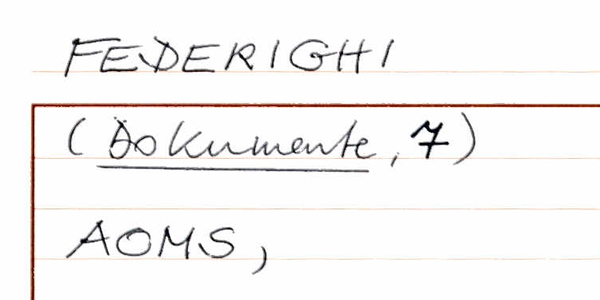 FEDERIGHI
(Dokumente, 7)
AOMS,